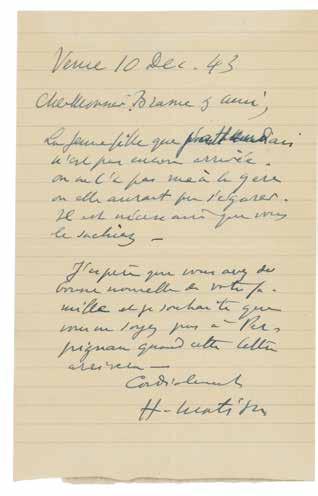 Vence 10 Dec. 43
Cher Monsieur Brame & ami,
La jeune fille que j'attendais
n'est pas encore arrivée.
on ne l'a pas vue à la gare
où elle aurait pu s'égarer.
Il est nécessaire que vous
le sachiez —
J'espère que vous avez de
bonne nouvelle de votre fa-
mille et je souhaite que
vous ne soyez pas à Per-
pignan quand cette lettre
arrivera —
Cordialement
H. Matisse